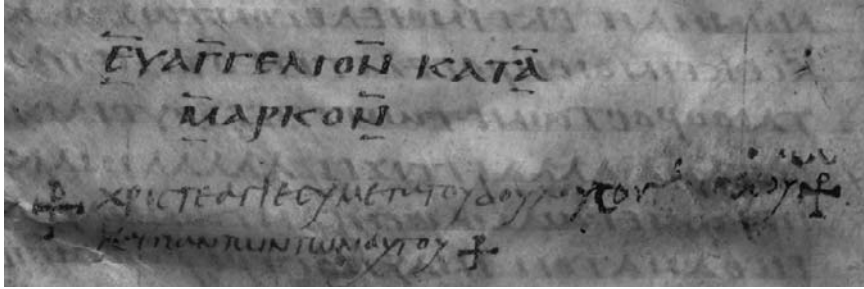 ΕΥΑΓΓΕΛΙΟΝ ΚΑΤΑ
ΜΑΡΚΟΝ
☧ ΧΡΙϹΤΕ ΑΓΙΕ ϹΥ ΜΕΤΑ ΤΟΥ ΔΟΥΛΟΥ ϹΟΥ ☧
ΠΑΝΤΩΝ ΤΩΝ ΑΥΤΟΥ ☧